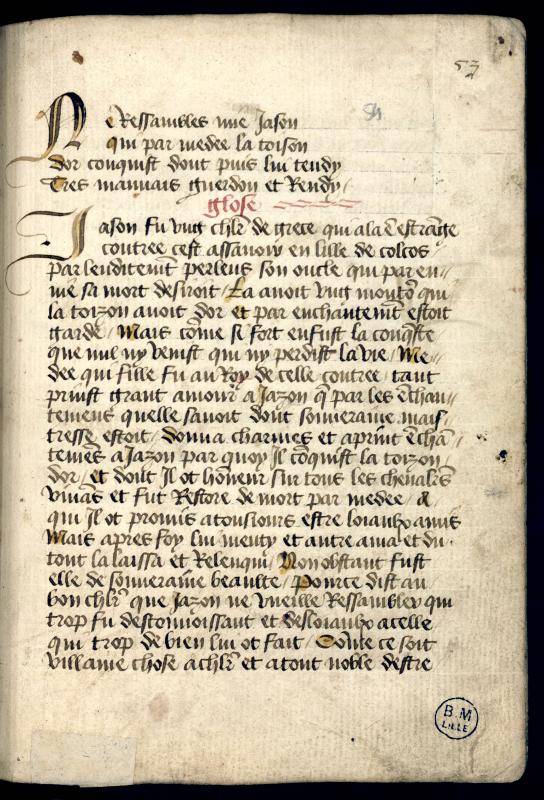 53
54
Ne Ressambles mie Jason
qui par medee la toison
dor conquist dont puis lui tendy
Tres mauuais guerdon et Rendy /
glose
Jason fu vng chlr de grece qui ala e estrãge
contree cest assauoir en lille de colcos
par lenditemt perleus son oncle qui par en=
uie sa mort desiroit / La auoit vng moutõ qui
la toizon auoit dor et par enchantemt estoit
garde / Mais cõme si fort en fust la conqste
que nul ny venist qui ny perdist la vie / Me=
dee qui fille fu au Roy de celle contree / tant
prinst grant amour a Jazon q par les ẽchan=
temens quelle sauoit dont souueraine mais=
tresse estoit / donna charmes et aprint ẽchã=
temẽs a Jazon par quoy Il cõquist la toizon
dor / et dont Il ot hõneur sur tous les cheualrs
viuãs et fut Restore de mort par medee / a
qui Il ot promis a tousiours estre loiaulx amis
Mais apres foy lui menty et autre ama et du
tout la laissa et Relenqui / Non obstant fust
elle de souueraine beaulte / Pource dist au
bon chlr que Jazon ne vueille Ressambler qui
trop fu descongnoissant et desloiaulx a celle
qui trop de bien lui ot fait / Cõme ce soit
villanie chose a chlr et a tout noble destre
B.M
LILLE